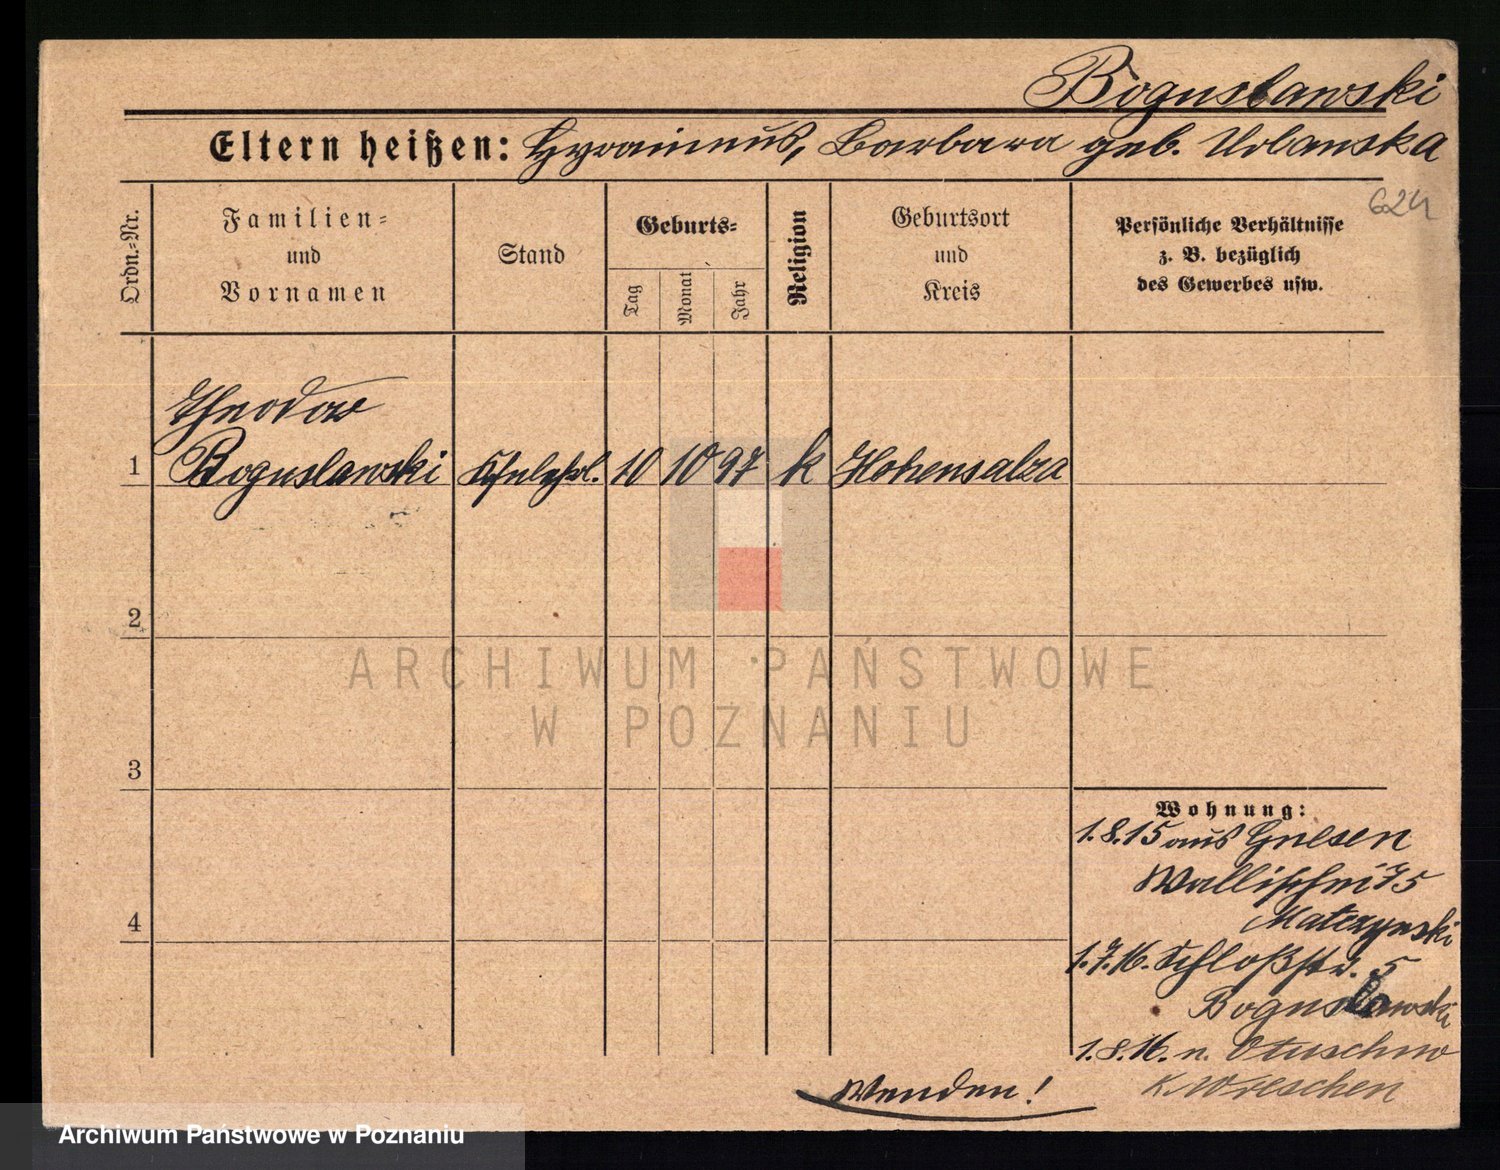 Boguslawski
Eltern heißen: Hyronimus, Barbara geb. Urbanska
624
Ordn.-Nr.
Familien-
und
Vornamen
Stand
Geburts-
Tag
Monat
Jahr
Religion
Geburtsort
und
Kreis
Persönliche Verhältnisse
z. B. bezüglich
des Gewerbes usw.
Theodor
1 Boguslawski 10 10 97 k Hohensalza
2
ARCHIWUM PAŃSTWOWE
W POZNANIU
3
Wohnung:
1.8.15 aus Gnesen
Wallischei 75
4
1.7.16. Schloßstr. 5
Boguslawski
1.8.16. n.
K. Wreschen
Wenden!
Archiwum Państwowe w Poznaniu